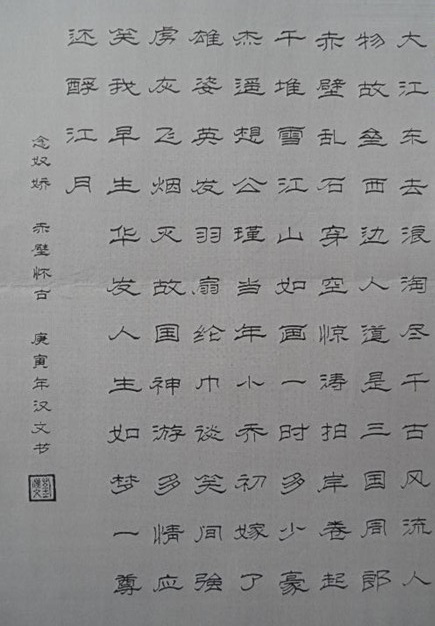 大江东去浪淘尽千古风流人
物故垒西边人道是三国周郎
赤壁乱石穿空惊涛拍岸卷起
千堆雪江山如画一时多少豪
杰遥想公瑾当年小乔初嫁了
雄姿英发羽扇纶巾谈笑间強
虏灰飞烟灭故国神游多情应
笑我早生华发人生如梦一尊
还酹江月
念奴娇 赤壁怀古 庚寅年汉文书